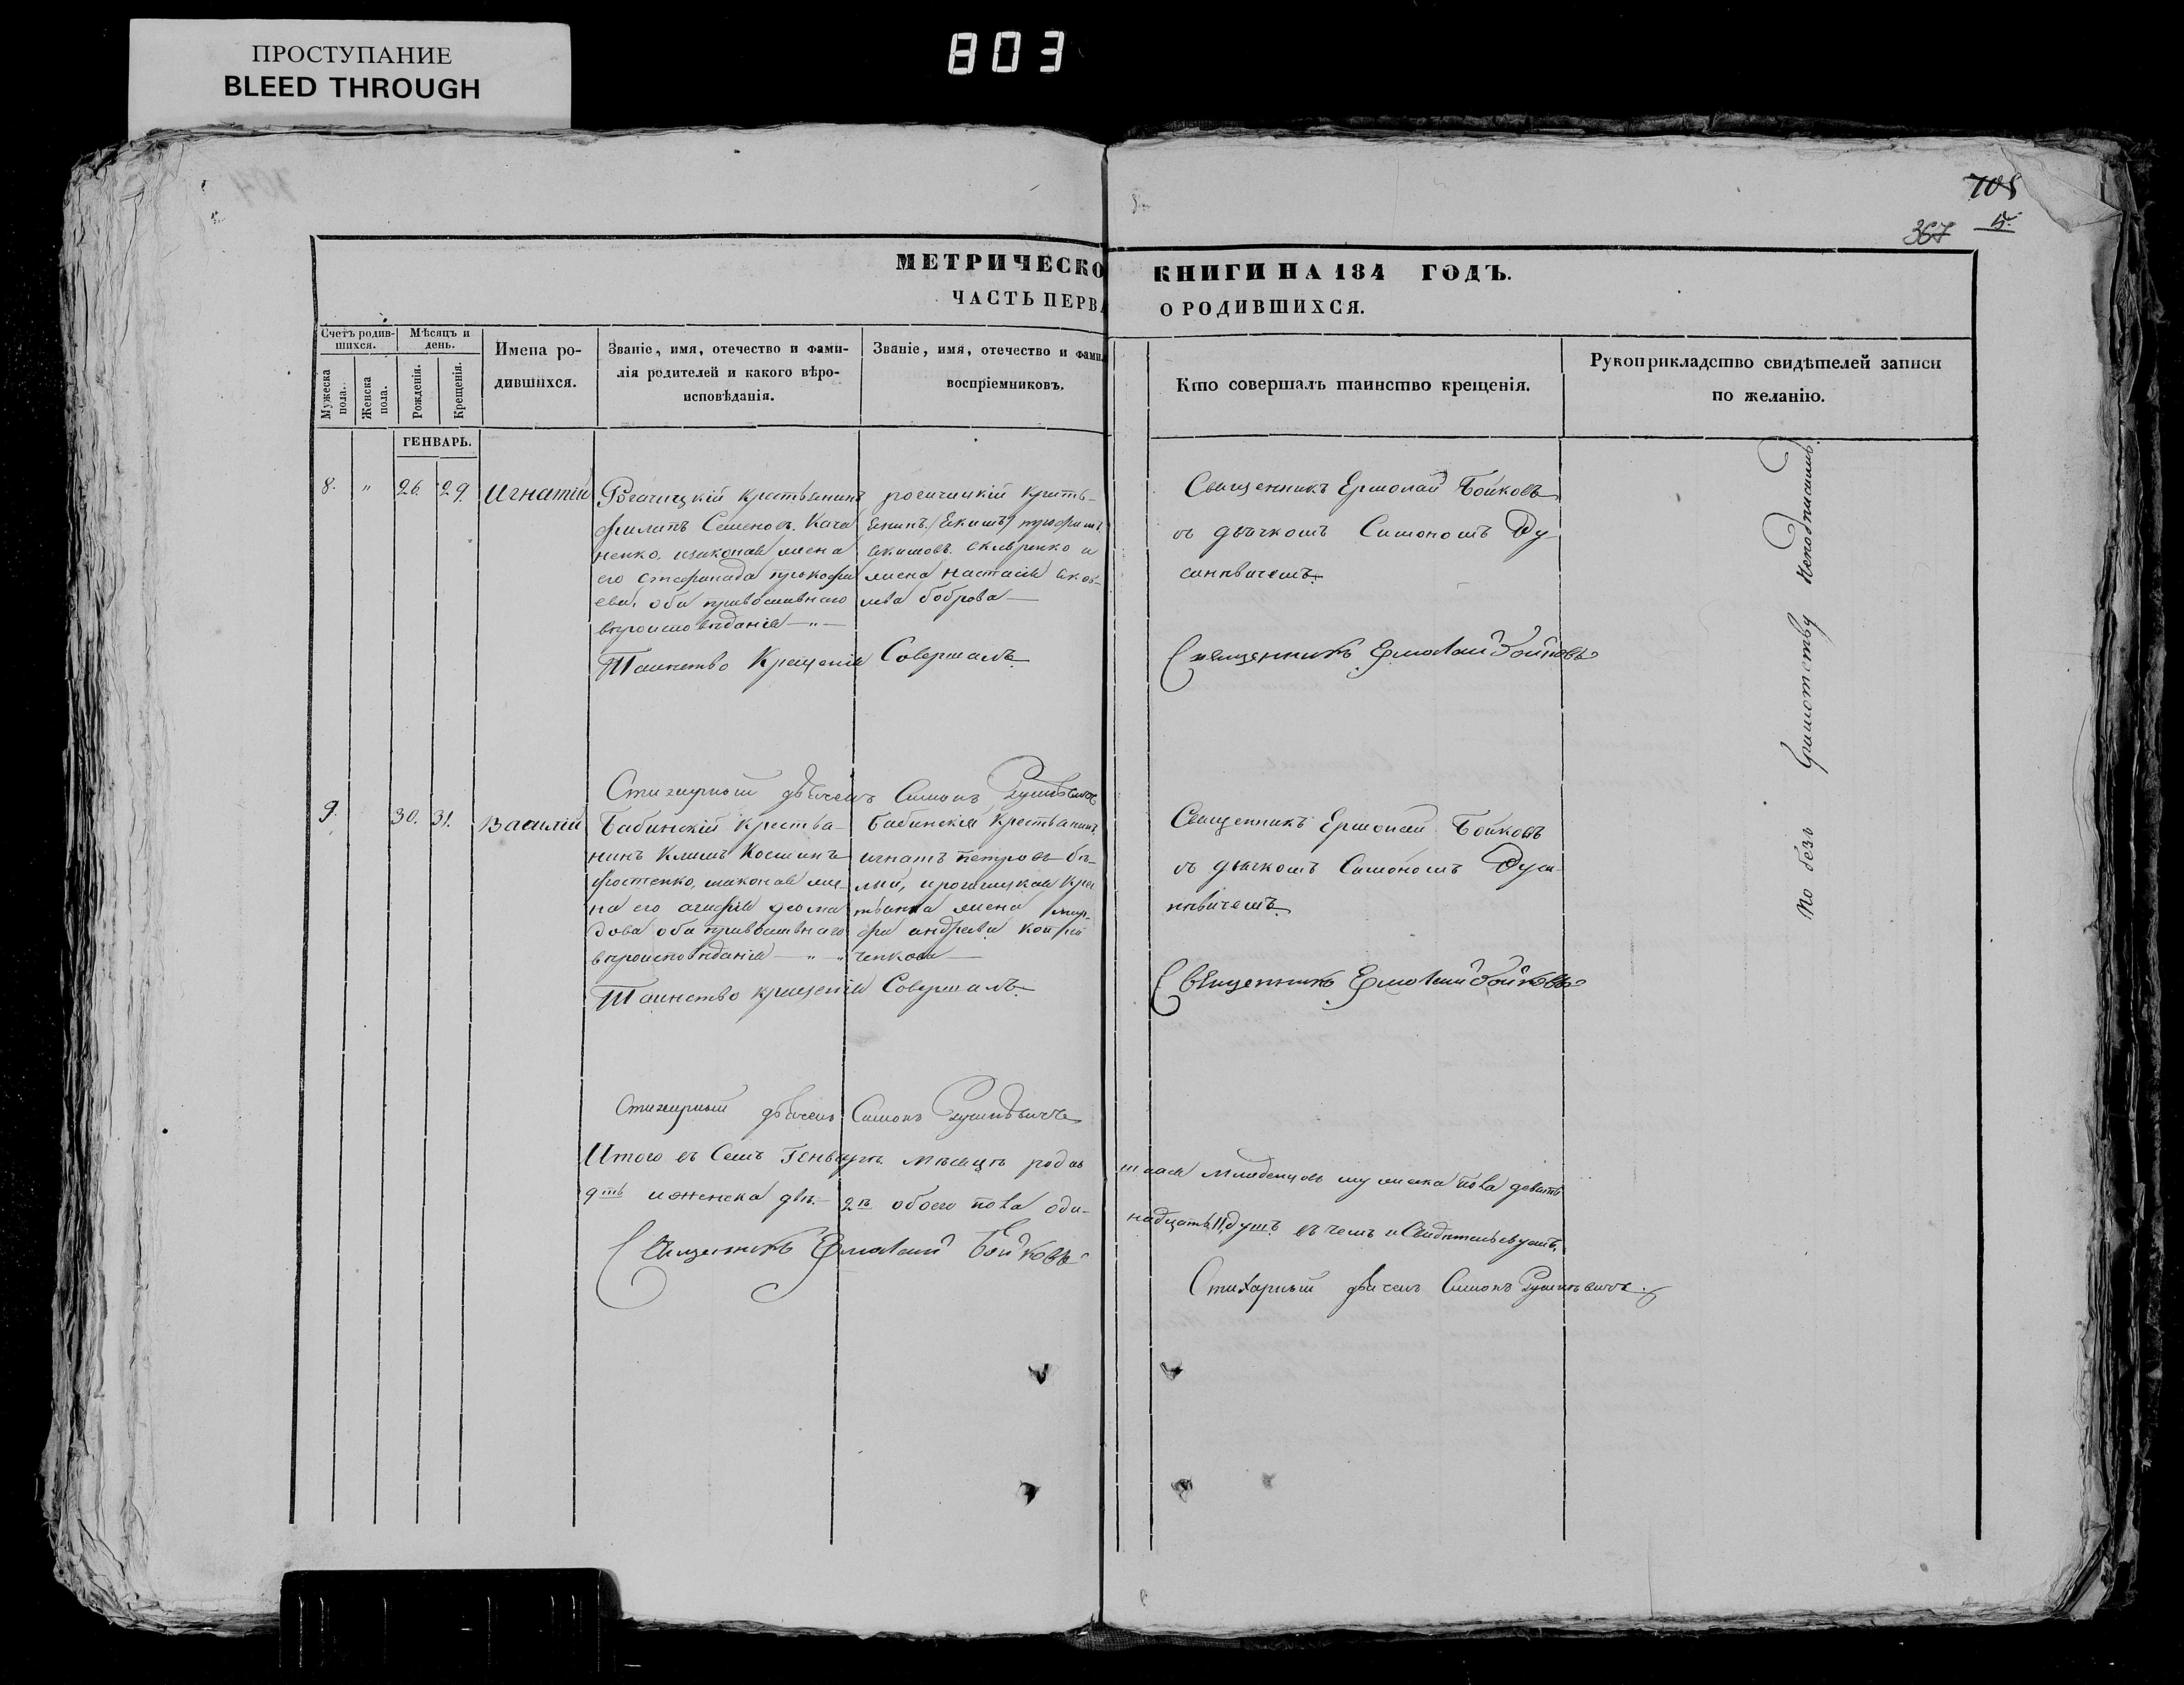 ПРОСТУПАНИЕ
BLEED THROUGH
803
705
367
МЕТРИЧЕСКО КНИГИ НА 184 ГОДЪ.
ЧАСТЬ ПЕРВА О РОДИВШИХСЯ.
Счетъ родив-
шихся.
Мѣсяцъ и
день.
Мужеска
пола.
Женска
пола.
Рожденія.
Крещенія.
Имена ро-
дившихся.
Званіе, имя, отечество и фами-
лія родителей и какого вѣро-
исповѣданія.
Званіе, имя, отечество и фами
воспріемниковъ.
Кто совершалъ таинство крещенія.
Рукоприкладство свидѣтелей записи
по желанію.
ГЕНВАРЬ.
8. " 26. 29. Игнатій
Рогачицкій крестьянинъ
филипъ Семеновъ. Кача
ненко, изаконая жена
его стефанида прокофи
ева, оба православнаго
вѣроисповѣданія — " —
Таинство Крещенія Совершалъ.
жена настасія яков-
лева боброва —
Священникъ Ермолай Бойковъ
съ дьячкомъ Симономъ Ду
синевичемъ.
Священникъ Ермолай Бойковъ
Стихарный дьячекъ Симонъ
9. 30. 31. Василій
Бабинскій крестья-
нинъ Климъ Косминъ
на его агафія
дова оба православнаго
вѣроисповѣданія — " — "
Таинство крещенія Совершалъ.
Бабинскій Крестьянинъ
игнатъ петровъ бѣ-
лый, ирогачицкая кре
стьянка жена
андреева
ченкова —
Священникъ Ермолай Бойковъ
съ дьячкомъ Симономъ Дуси-
невичемъ.
Священникъ Ермолай Бойковъ
Стихарный дьячекъ Симонъ
Итого въ Семъ Генварѣ мѣсяцѣ родив шихся младенцовъ мужеска пола девять
9ть иженска двѣ — 2ѣ обоего пола оди- надцать 11, душъ. въ чемъ и Свидѣтельствуемъ,
Священникъ Ермолай Бойковъ
Стихарный дьячекъ Симонъ
По безъ Грамотству Неподписались.